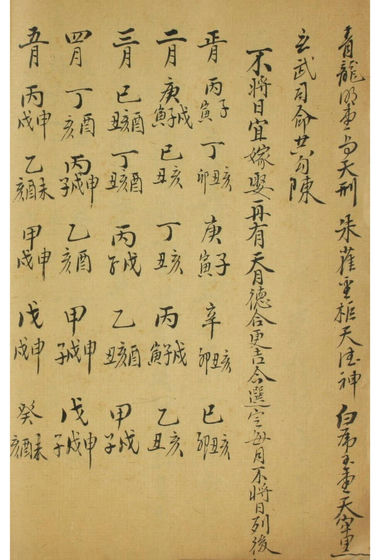 青龍明堂与天刑 朱雀金柜天德神 白虎玉堂天牢黑
玄武司命共勾陳
不將日宜嫁娶再有天月德合更吉合選定每月不將日列後
正月 丙子寅 丁亥丑卯 庚子寅 辛亥丑卯 巳亥丑卯
二月 庚戌子寅 巳亥丑 丁亥丑 丙戌子寅 乙亥丑
三月 巳酉亥丑 丁酉亥丑 丙戌子 乙酉亥丑 甲戌子
四月 丁酉亥 丙申戌子 乙酉亥 甲申戌子 戊申戌子
五月 丙申戌 乙未酉亥 甲申戌 戊申戌 癸未酉亥